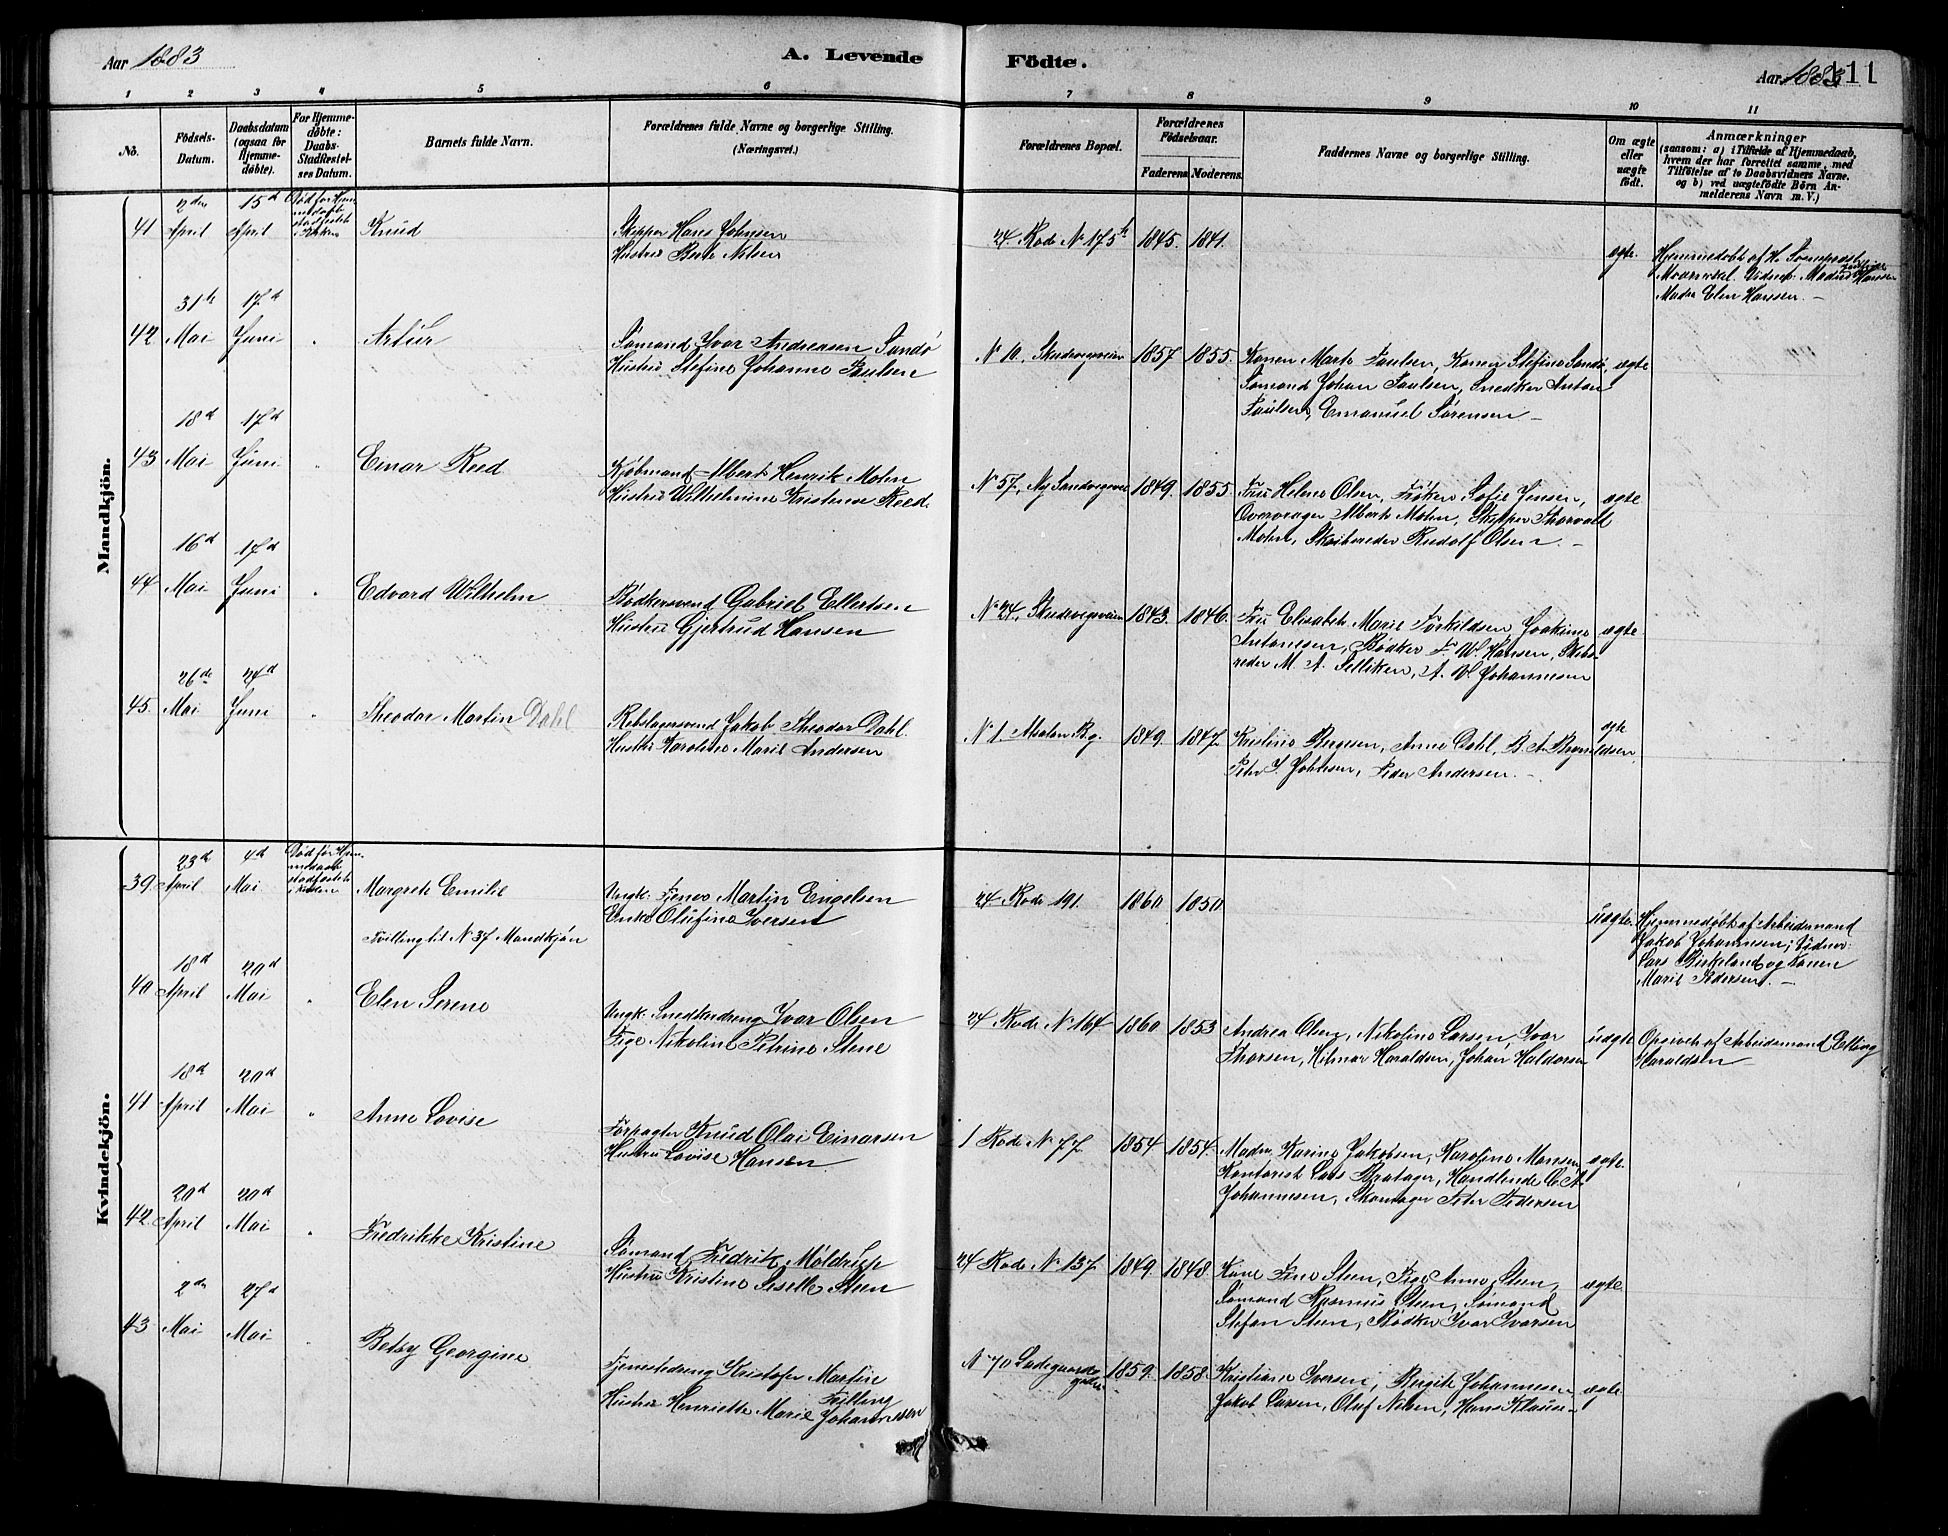 Aar 1883
A. Levende Födte.
Aar 1883
111
1 2 3 4 5 6 7 8 9 10 11
No.
Födsels-Datum.
Daabsdatum (ogsaa for Hjemmedöbte).
For Hjemmedøbte: Daabs-Stadfæstelses Datum.
Barnets fulde Navn.
Forældrenes fulde Navne og borgerlige Stilling. (Næringsvei.)
Forældrenes Bopæl.
Forældrenes Födselsaar.
Faderens Moderens.
Faddernes Navne og borgerlige Stilling.
Om ægte eller uægte födt.
Anmærkninger
(saasom: a) i Tilfælde af Hjemmedaab, hvem der har forrettet samme, med Tilföielse af to Daabsvidners Navne. og b) ved uægtefödte Börn Anmelderens Navn m. V.)
Mandkjön.
41 2den April 15d April Død før Hjemmedaab stadfestet i Kirken Knud
Skipper Hans Johnsen
Hustru Berte Nilsen
24 Rode N 175 b 1845. 1841. ægte.
Hjemmedøbt af Hr Sogneprest
Madm Hansen
Madm Elen Hansen. —
42 31te Mai 17d Juni " Artur
Sømand Ivar Andreasen Sandø
Hustru Stefine Johanne Paulsen
N 10. Skudevigsveien 1857 1855.
Konen Marte Paulsen, Konen Stefine Sandø, ægte
Sømand Johan Paulsen, Snedker Anton
Paulsen, Emanuel Sørensen —
43 18d Mai 17d Juni " Einar Reed
Kjøbmand Albert Henrik Mohn
Hustru Wilhelmine Kristine Reed.
N 57, Ny Sandvigsvei 1849. 1855.
Fru Helene Olsen, Frøken Sofie Jensen, ægte
Overvrager Albert Mohn, Skipper Thorvald
Mohn, Skibsreder Rudolf Olsen. —
44 16d Mai 17d Juni " Edvard Wilhelm
Bødkersvend Gabriel Ellertsen
Hustru Gjertrud Hansen
N 24, Skudevigsveien 1843. 1846.
Fru Elisabeth Marie Torkildsen, Joakime ægte
Antonesen, Bødker F. W. Hansen, Skibs-
reder M. A. Selliken, A. W. Johannesen
45. 26de Mai 24d Juni " Theodor Martin Dahl
Rebslagersvend Jakob Theodor Dahl.
Hustru Karoline Marie Andersen
N 1. 1849. 1847.
Kristine Børgesen, Anne Dahl, B. A. Brynildsen, ægte
Peter J. Johnsen, Peder Andersen. —
Kvindekjön.
39. 23de April 4d Mai Død før Hjemmedaab stadfestet i Kirken Margrete Emilie
Tvilling til N 37 Mandkjøn
Ungk: Tjener Martin Engelsen
Enke Olufine Iversen
24 Rode 191. 1860 1850 uægte.
Hjemmedøbt af Arbeidsmand
Jakob Johannesen; Vidner:
Lars Birkeland og Konen
Marie Pedersen. —
40 18d April 20d Mai " Elen Serene
Ungk: Snedkerdreng Ivar Olsen
Pige Nikoline Petrine Stene
24 Rode N 164 1860. 1853
Andrea Olsen, Nikoline Larsen, Ivar uægte
Thorsen, Hilmar Haraldsen, Johan Haldorsen
Opgivet af Arbeidsmand Elling
Haraldsen —
41 18d April 20d Mai " Anne Lovise
Forpagter Knud Olai Einarsen
Hustru Lovise Hansen
1 Rode N 77. 1854 1854.
Madm Karine Jakobsen, Karoline Monsen ægte.
Kontorist Lars Bratager, Handlende C. A.
Johannesen, Skomager Peter Pedersen
42. 20d April 20d Mai " Fredrikke Kristine
Sømand Fredrik Møldrup
Hustru Kristine Siselle Steen
24 Rode N 137. 1849. 1848.
Kone Fine Steen, Pige Anne Steen, ægte
Sømand Rasmus Steen, Sømand
Stefan Steen, Bødker Ivar Ivarsen
43. 2den Mai 27d Mai " Betsy Georgine
Tjenestedreng Kristofer Martin
Fylling
Hustru Henriette Marie Johannesen
N 70 Ladegaardsgaden 1859. 1858.
Kristiane Iversen, Bergite Johannesen, ægte
Jakob Larsen, Oluf Nilsen, Hans Klausen